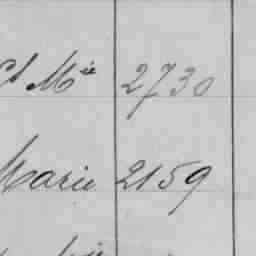 Mie 2730
Marie 2159